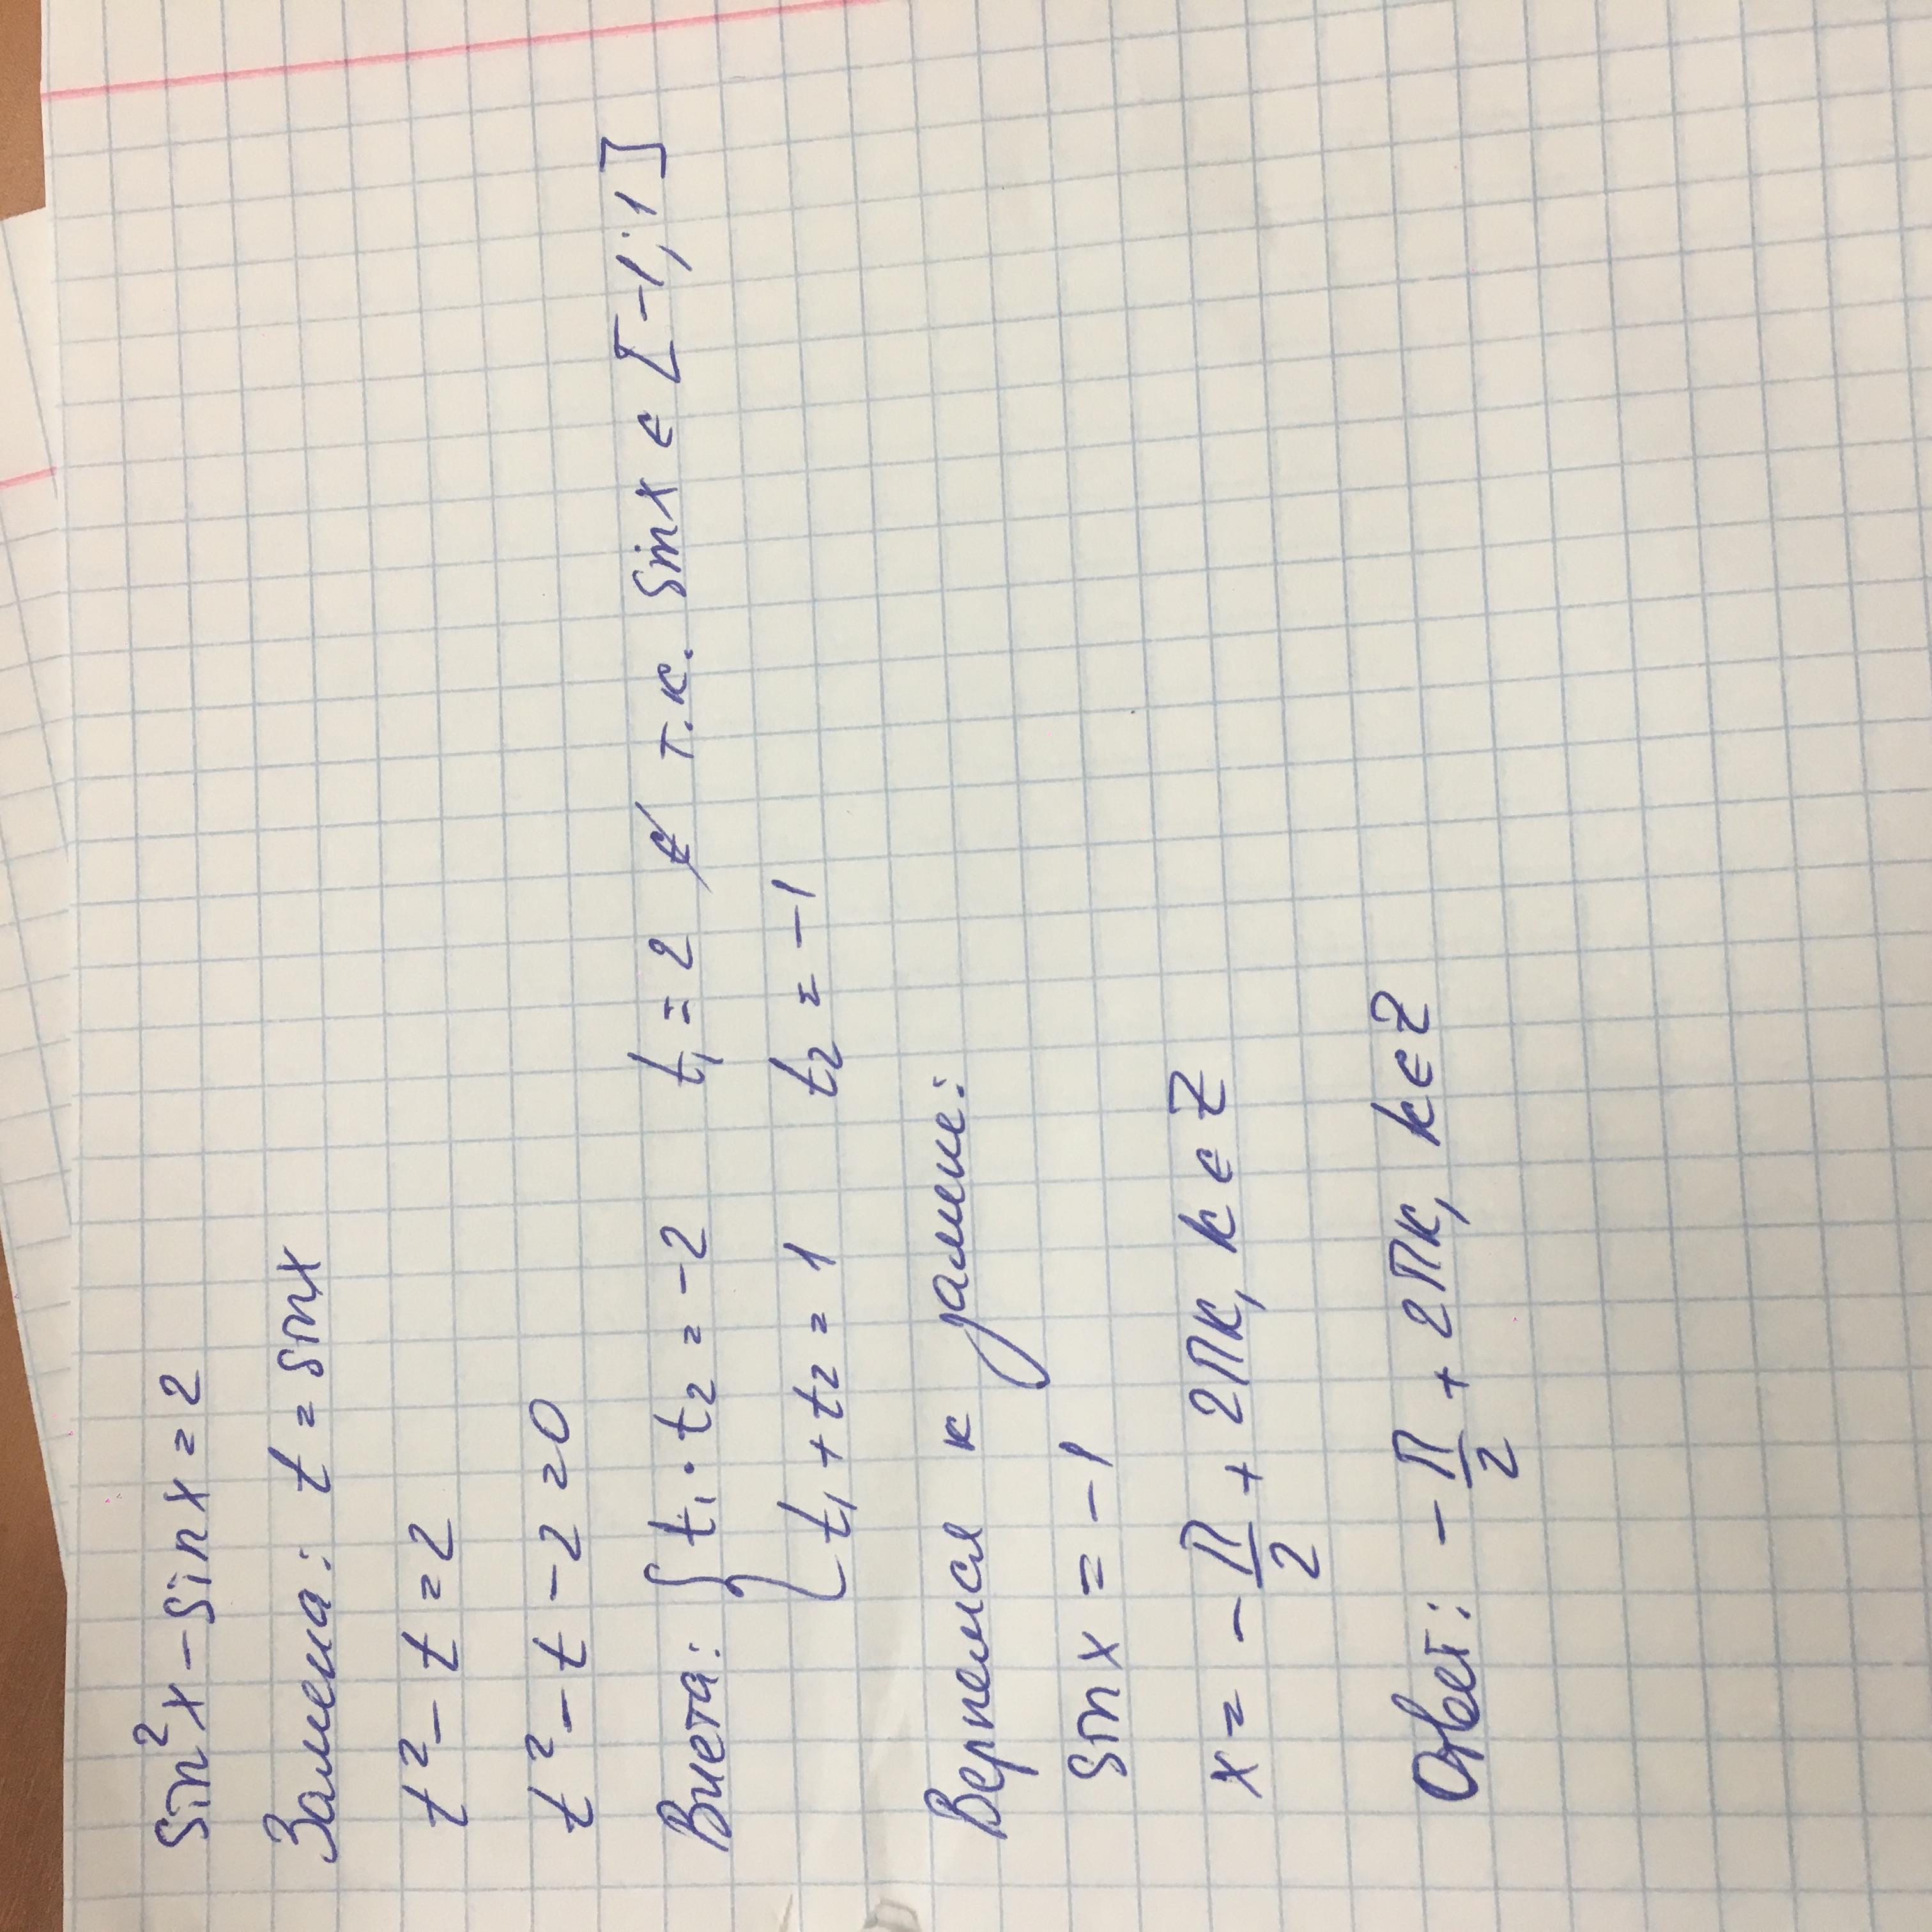 sin²x - sin x = 2
Замена: t = sin x
t² - t = 2
t² - t - 2 = 0
Виета: { t₁ · t₂ = -2 t₁ = 2 ∉ т.к. sin x ∈ [-1; 1]
t₁ + t₂ = 1 t₂ = -1
Вернемся к замене:
sin x = -1
x = - П/2 + 2Пк, k ∈ Z
Ответ: - П/2 + 2Пк, k ∈ Z